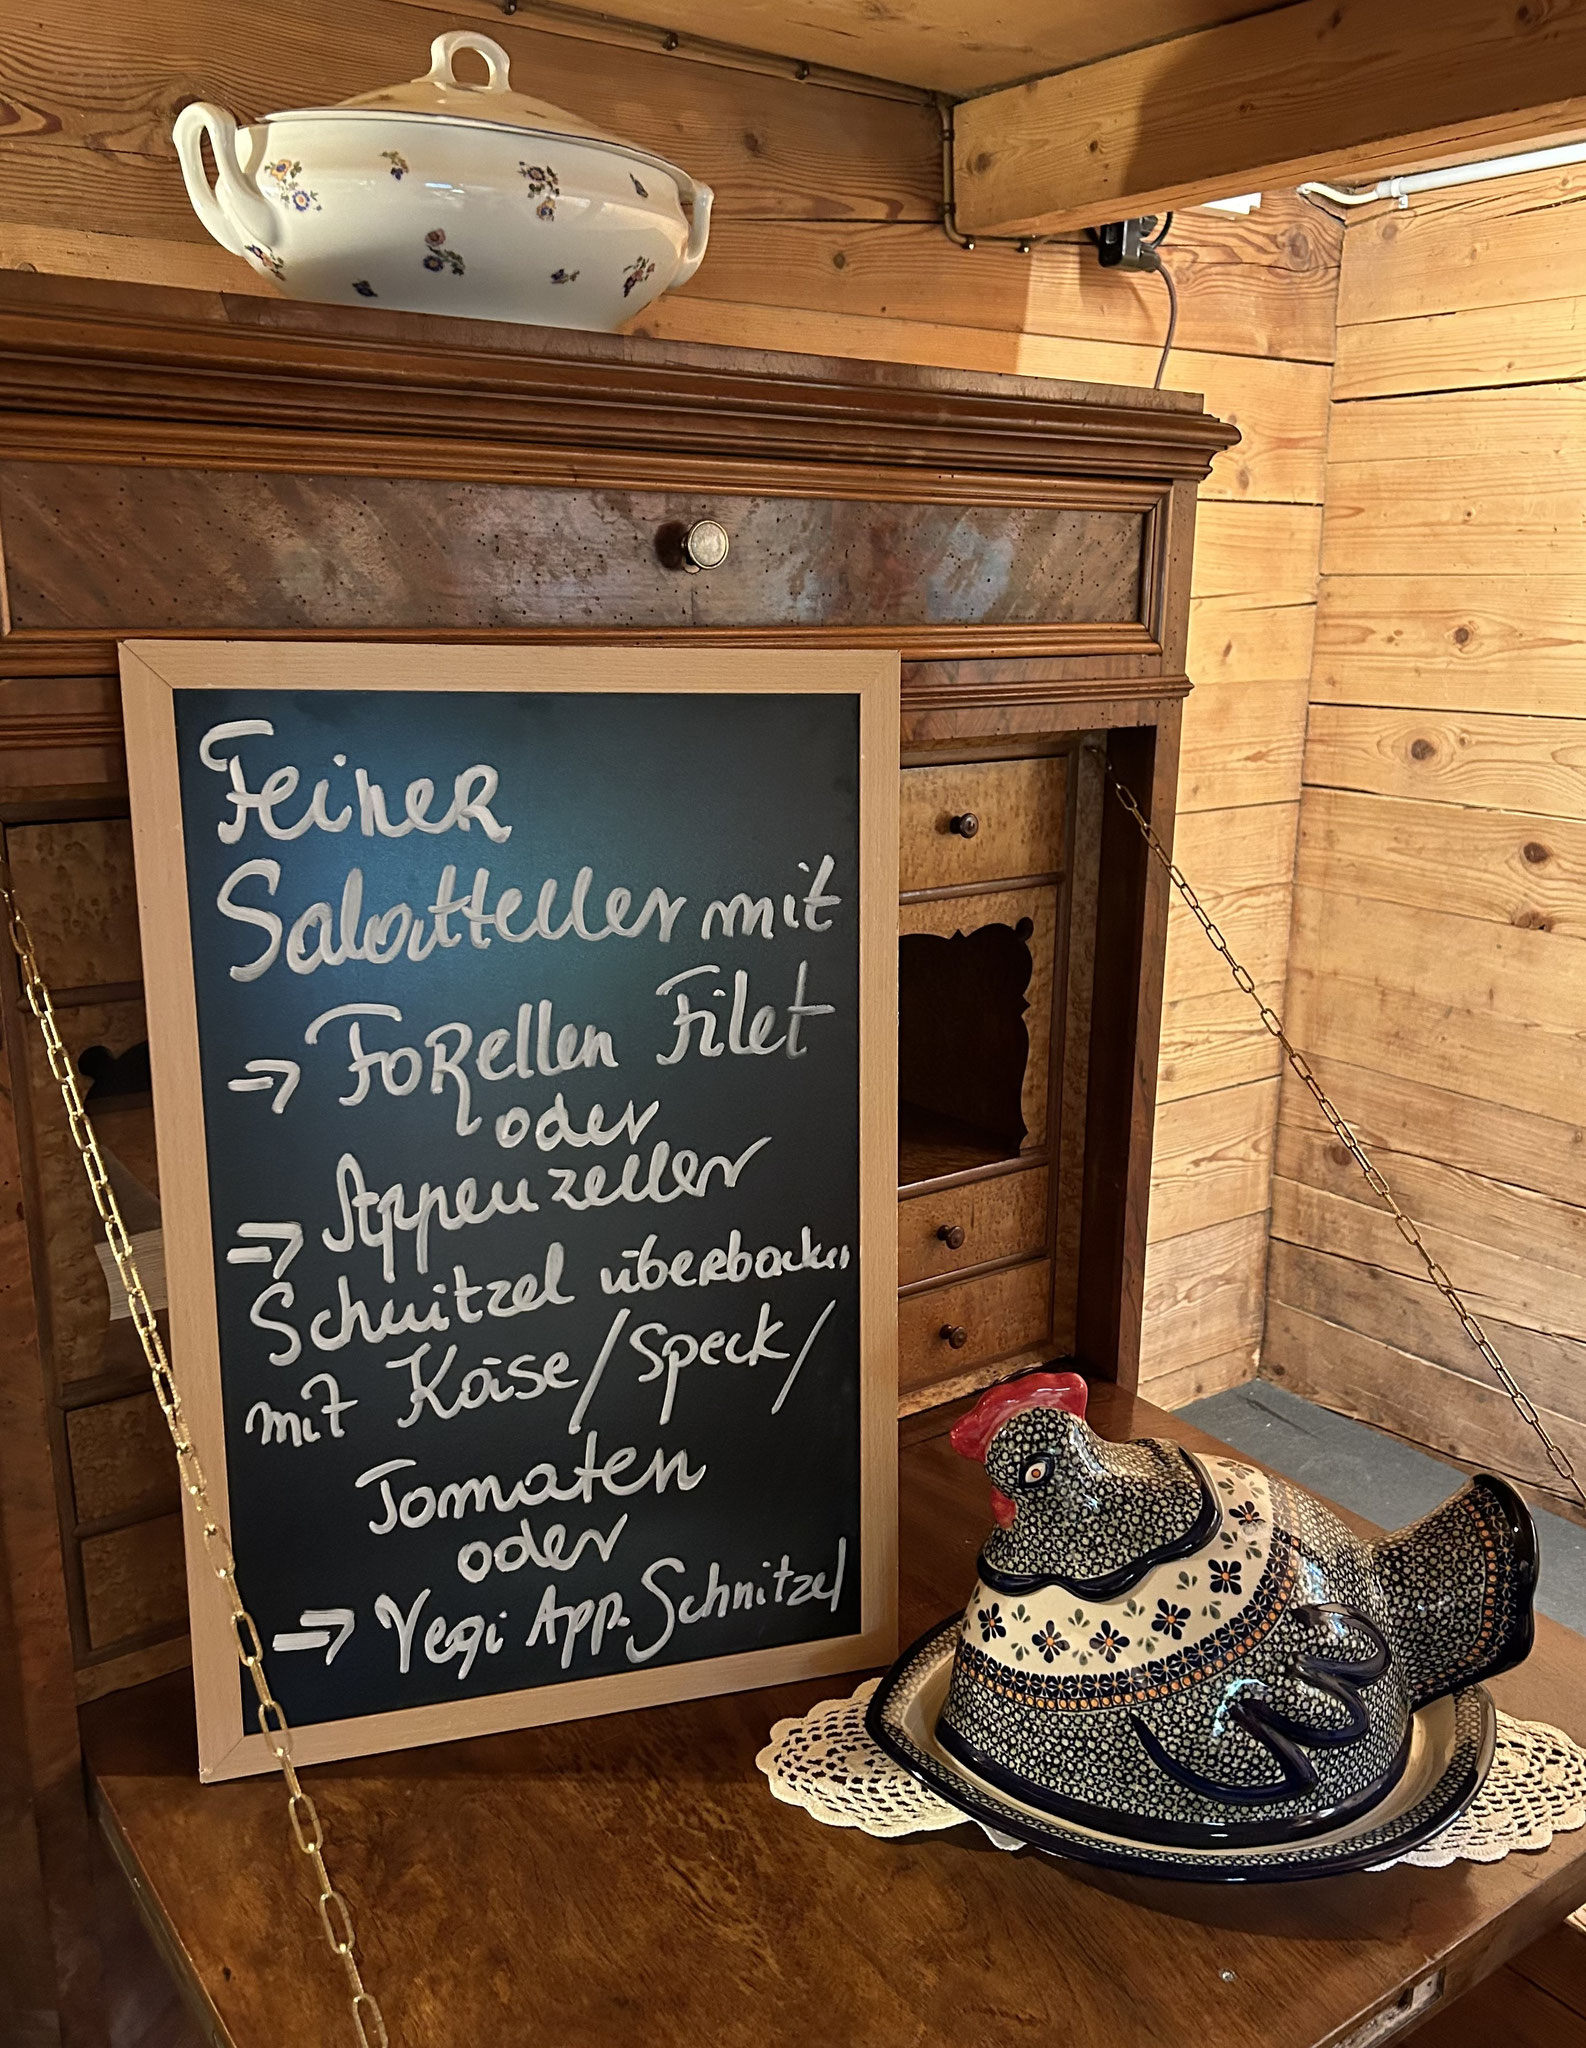 Feiner
Salatteller mit
=> Forellen Filet
oder
=> Appenzeller
Schnitzel überbacken
mit Käse/Speck/
Tomaten
oder
=> Vegi App. Schnitzel